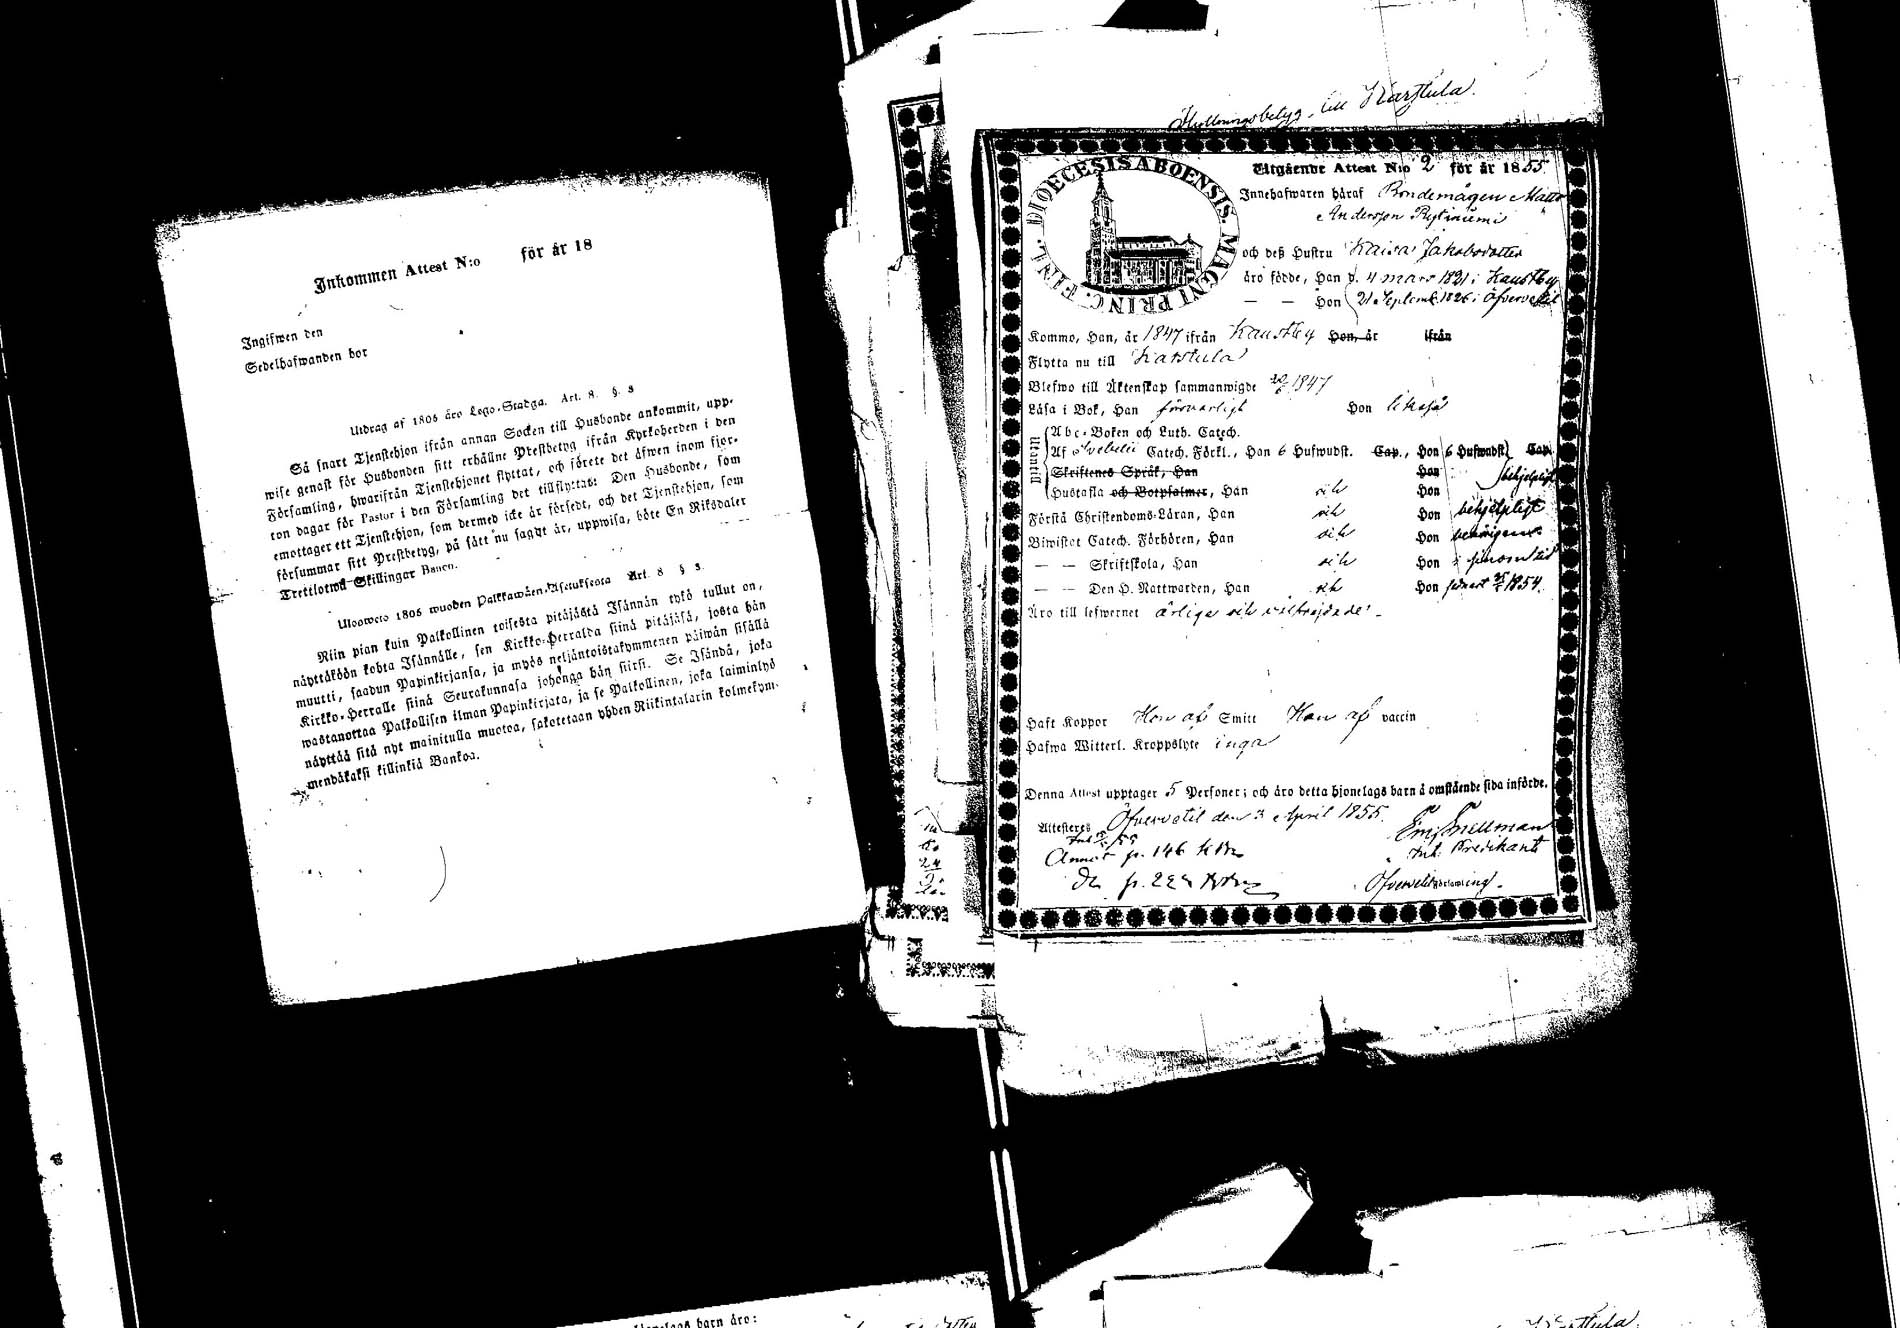 Inkommen Attest N:o för år 18
Ingifwen den
Sedelhafwanden bor
Utdrag af 1805 åro Lego-Stadga. Art. 8. §. 3
Så snart Tjenstehjon ifrån annan Socken till Husbonde ankommit, upp-
wise genast för Husbonden sitt erhållne Prestbetyg ifrån Kyrkoherden i den
Församling, hwarifrån Tjenstehjonet flyttat, och förete det äfwen inom fjor-
ton dagar för Pastor i den Församling det tillflyttat: Den Husbonde, som
emottager ett Tjenstehjon, som dermed icke är försedt, och det Tjenstehjon, som
försummar sitt Prestbetyg, på sätt nu sagdt är, uppwisa, böte En Riksdaler
Trettiotwå Skillingar Banco.
Ulosweto 1805 wuoden Palkkawäen-Asetuksesta Art. 8 § 3.
Niin pian kuin Palkollinen toisesta pitäjästä Isännän tykö tullut on,
näyttäköön kohta Isännälle, sen Kirkko-Herralda siinä pitäjäsä, josta hän
muutti, saadun Papinkirjansa, ja myös neljäntoistakymmenen päiwän sisällä
Kirkko-Herralle siinä Seurakunnasa johonga hän siirsi. Se Isändä, joka
wastanottaa Palkollisen ilman Papinkirjata, ja se Palkollinen, joka laiminlyö
näyttää sitä nyt mainitulla muotoa, sakotetaan yhden Riikintalarin kolmekym-
mendäkaksi killinkiä Bankoa.
Flyttningsbetyg till Karstula.
DIOECESIS ABOENSIS. MAGNI PRINC. FINL.
Utgående Attest N:o 2 för år 1855
Innehafwaren häraf Bondemågen Matts
Andersson Rytiniemi
och deß Hustru Kaisa Jakobsdotter
äro födde, Han d. 4 mars 1821 i Kaustby
— — Hon 21 Septemb. 1826 i Öfvervetil
Kommo, Han, år 1847 ifrån Kaustby Hon, år ifrån
Flytta nu till Karstula
Blefwo till Äktenskap sammanwigde 20/6 1847
Läsa i Bok, Han försvarligt Hon likaså
Utantill
Abc-Boken och Luth. Catech.
Af Svebelii Catech. Förkl., Han 6 Hufwudst. Cap., Hon 6 Hufwudst. Cap.
Skriftenes Språk, Han Hon behjelpligt
Hustafla och Botpsalmer, Han och Hon
Förstå Christendoms-Läran, Han och Hon behjelpligt
Biwistat Catech. Förhören, Han och Hon
— — Skriftskola, Han och Hon i sinom tid
— — Den H. Nattwarden, Han och Hon senast 1854.
Äro till lefwernet ärliga och välfrejdade.
Haft Koppor Hon af Smitt Han af vaccin
Hafwa Witterl. Kroppslyte inga
Denna Attest upptager 5 Personer; och äro detta hjonelags barn å omstående sida införde.
Attesteras Öfvervetil den 3 April 1855.
Em. Snellman
Annot p. 146
Predikant